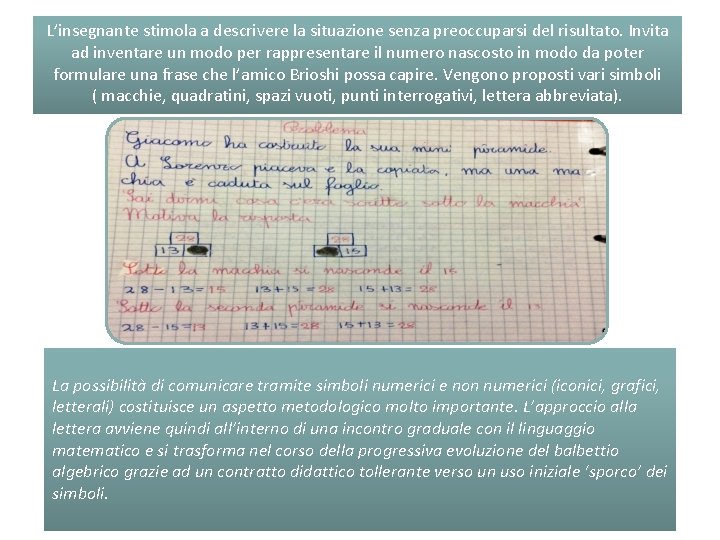 L'insegnante stimola a descrivere la situazione senza preoccuparsi del risultato. Invita
ad inventare un modo per rappresentare il numero nascosto in modo da poter
formulare una frase che l'amico Brioshi possa capire. Vengono proposti vari simboli
( macchie, quadratini, spazi vuoti, punti interrogativi, lettera abbreviata).
Problema
Giacomo ha costruito la sua mini piramide.
A Lorenzo piaceva e la copiata, ma una ma
chia è caduta sul foglio.
"Sai dirmi cosa c'era scritto sotto la macchia?
Motiva la risposta
28 28
13 15
Sotto la macchia si nasconde il 15
28-13=15 13+15=28 15+13=28
Sotto la seconda piramide si nasconde il 13
28-15=13 13+15=28 15+13=28
La possibilità di comunicare tramite simboli numerici e non numerici (iconici, grafici,
letterali) costituisce un aspetto metodologico molto importante. L'approccio alla
lettera avviene quindi all'interno di una incontro graduale con il linguaggio
matematico e si trasforma nel corso della progressiva evoluzione del balbettio
algebrico grazie ad un contratto didattico tollerante verso un uso iniziale 'sporco' dei
simboli.